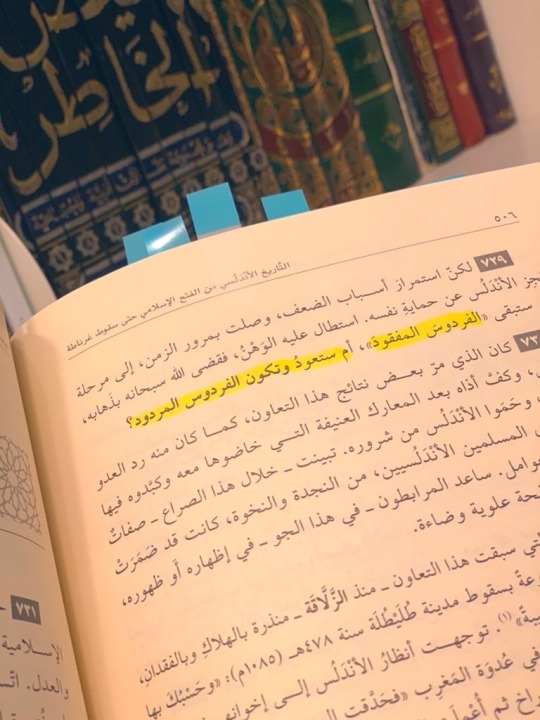 الخاطر
٥٠٦
التأريخ الأندلسي من الفتح الإسلامي حتى سقوط غرناطة
٧٢٩ لكنّ استمرارَ أسباب الضعف، وصلت بمرور الزمن، إلى مرحلة
الأندَلُس عن حماية نفسه. استطال عليه الوَهْنُ، فقضى الله سبحانه بذَهابه،
ستبقى «الفردوس المفقود»، أم ستعودُ وتكون الفردوس المردود؟
كان الذي مرّ بعض نتائج هذا التعاون، كما كان منه رد العدو
وكفّ أذاه بعد المعارك العنيفة التي خاضوها معه وكبَّدوه فيها
وحَمَوا الأندَلُس من شروره. تبينت ــ خلال هذا الصراع ــ صفاتُ
المسلمين الأندَلُسيين، من النجدة والنخوة، كانت قد ضَمَرَتْ
ساعد المرابطون ــ في هذا الجو ــ في إظهاره أو ظهوره،
علوية وضاءة.
سبقت هذا التعاون ــ منذ الزَّلّاقَة ــ منذرة بالهلاكِ وبالفقدانِ،
بسقوط مدينة طُلَيْطُلَة سنة ٤٧٨هـ (١٠٨٥م): «وحَسْبُكَ بها
(١). توجهت أنظارُ الأندَلُس إلى
في عُدوَة المَغرِب «فحَدَّقت
ثم
٧٣١
الإسلامية
والعدل.